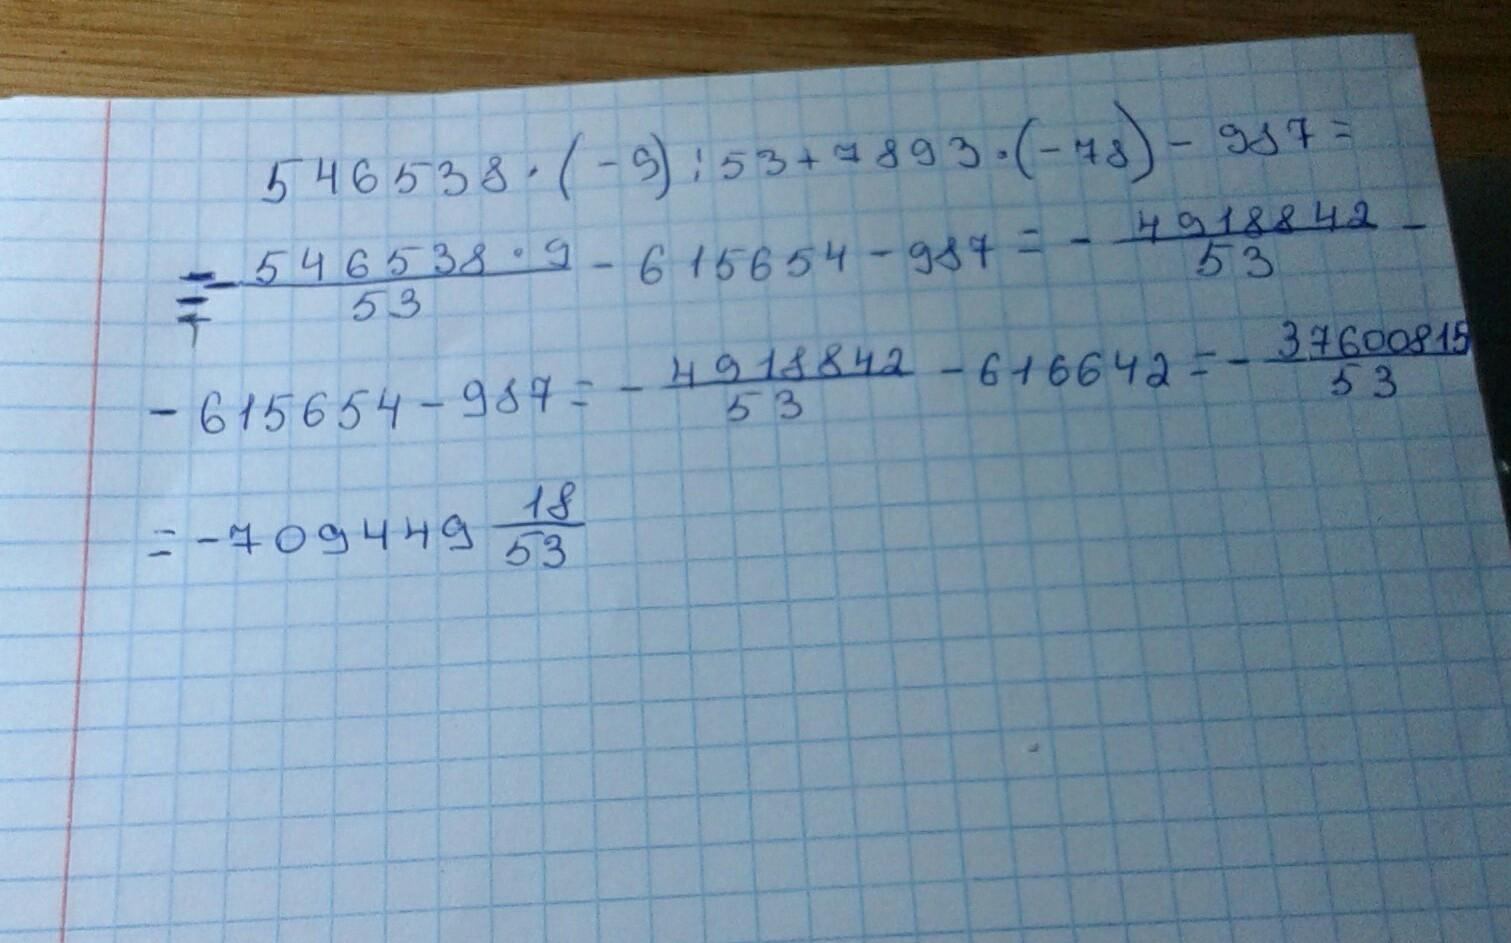 546538·(-9):53+7893·(-78)-987=
=-\frac{546538·9}{53}-615654-987=-\frac{4918842}{53}-
-615654-987=-\frac{4918842}{53}-616642=-\frac{37600815}{53}
=-709449\frac{18}{53}